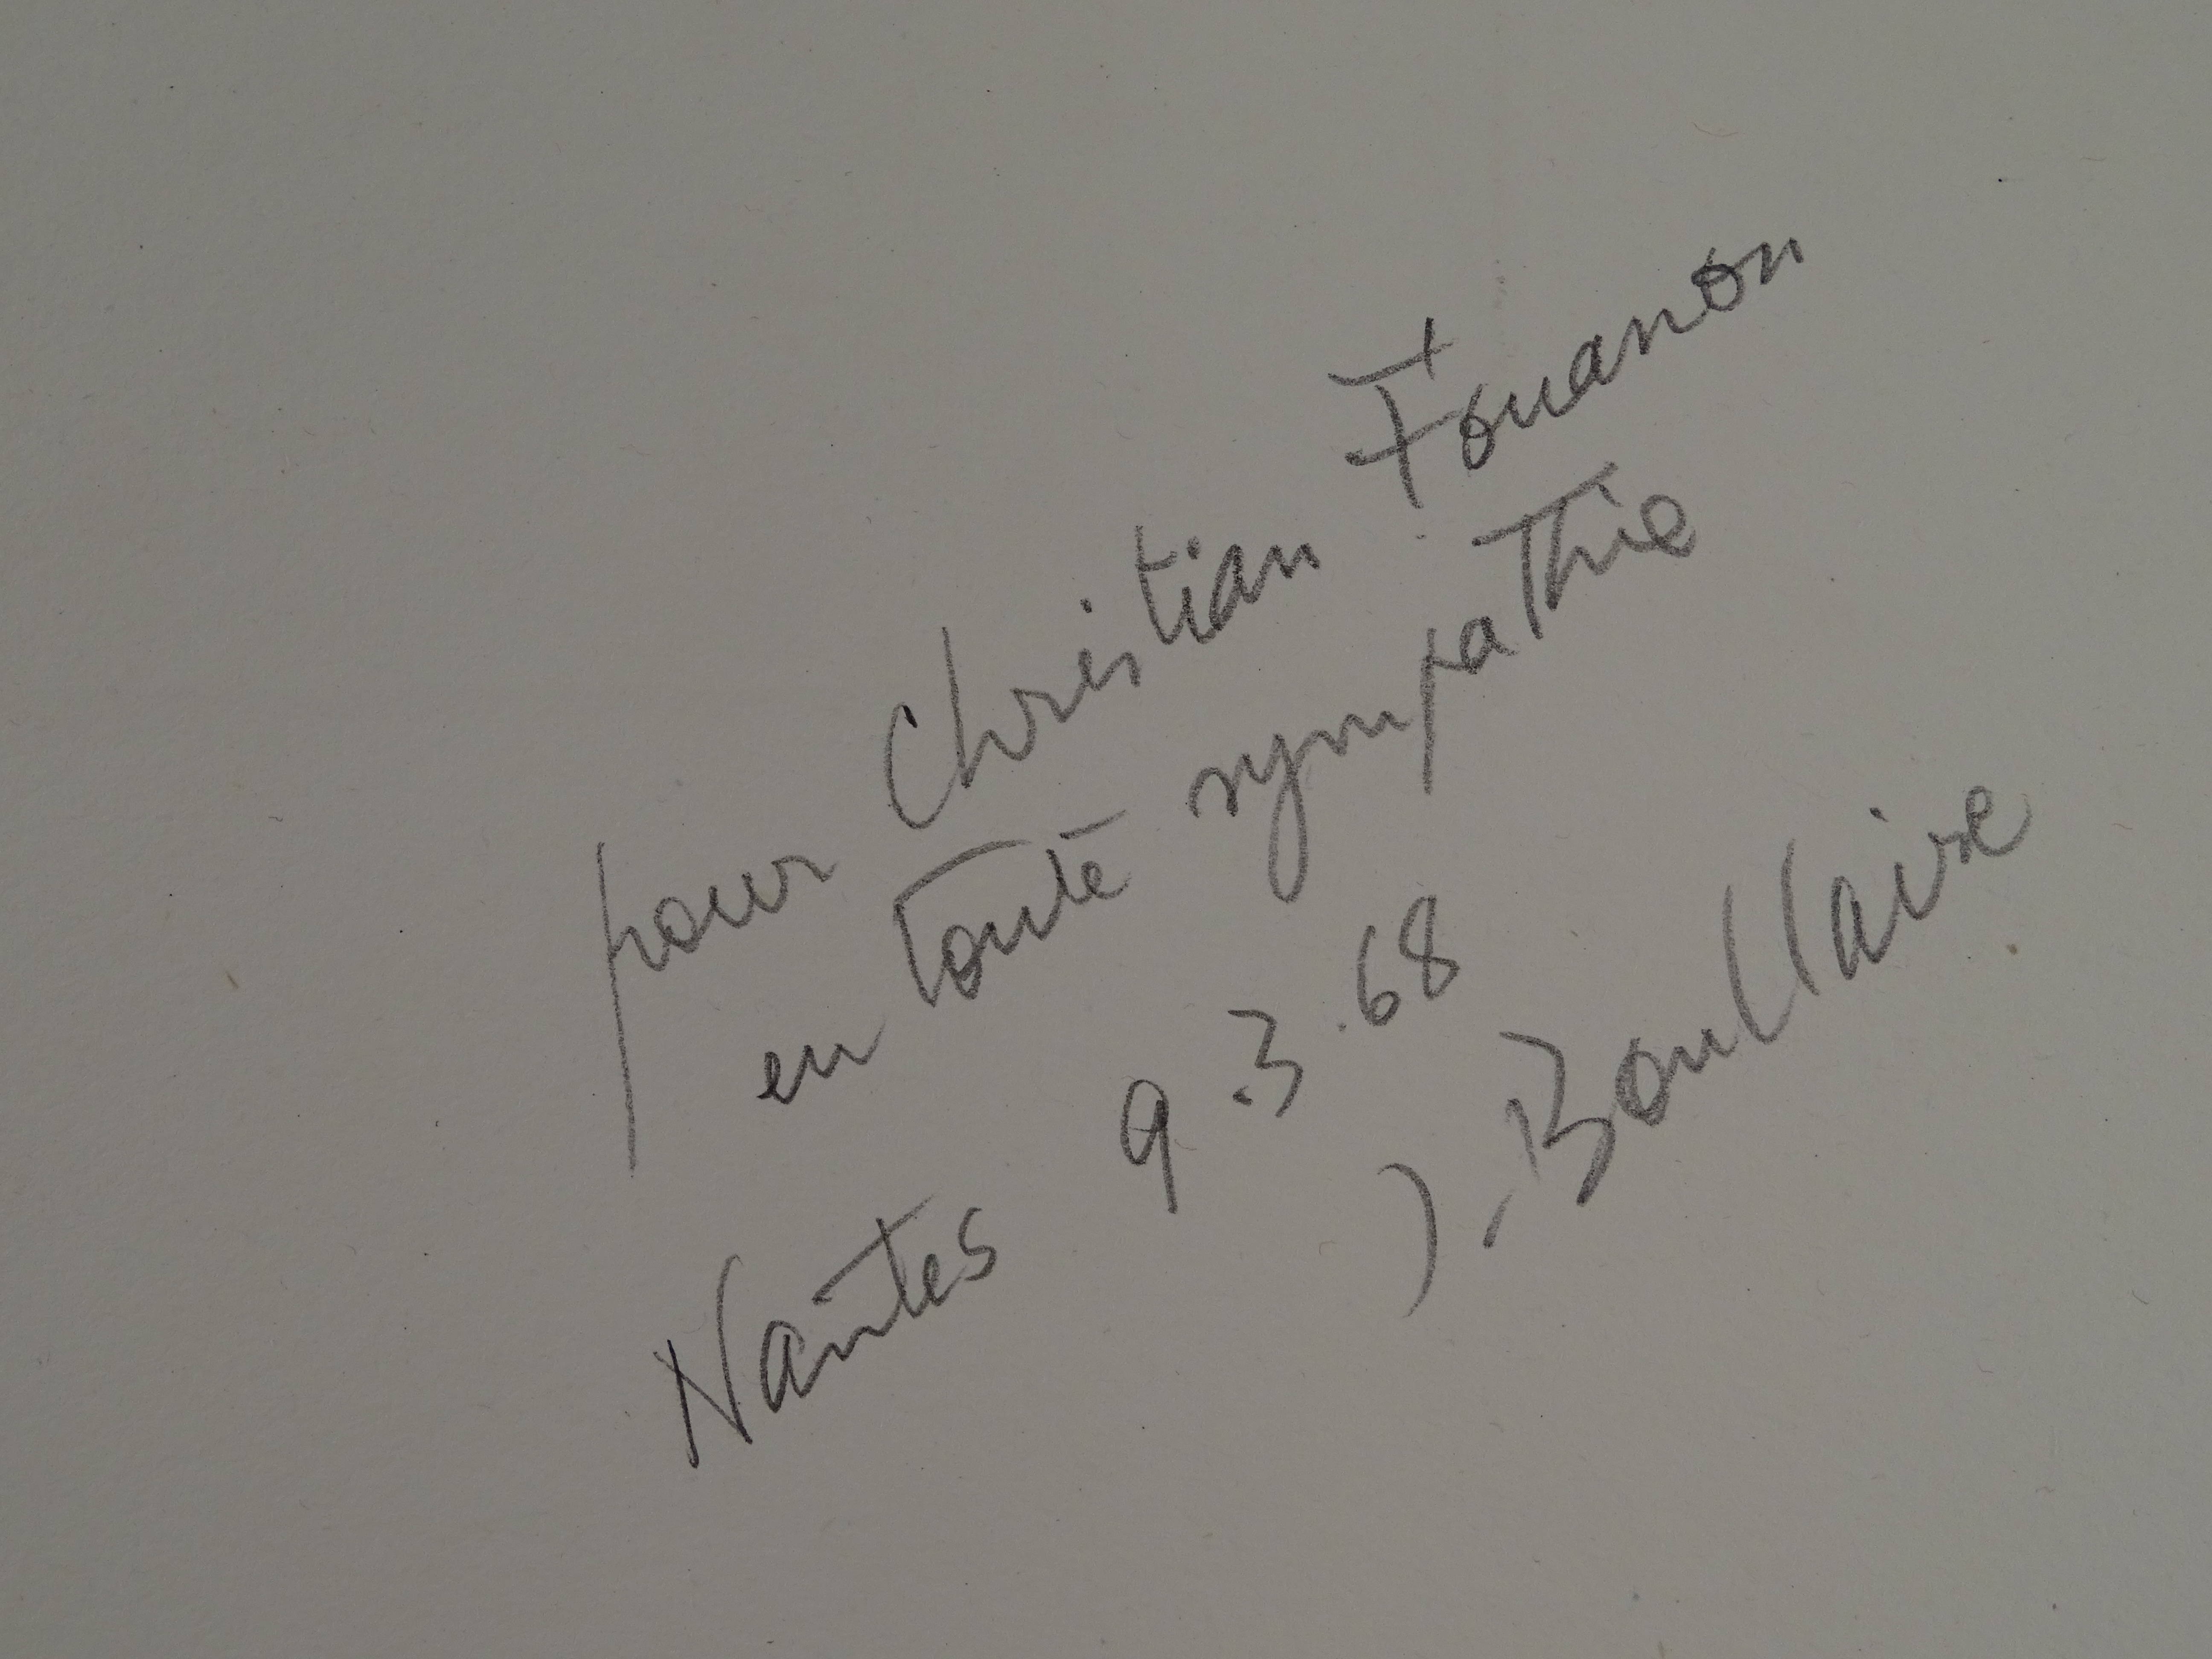 pour Christian Fouanon
en toute sympathie
Nantes 9.3.68
J. Boullaire